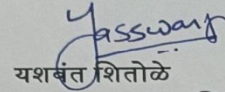 Yasswanj
यशवंत शितोळे